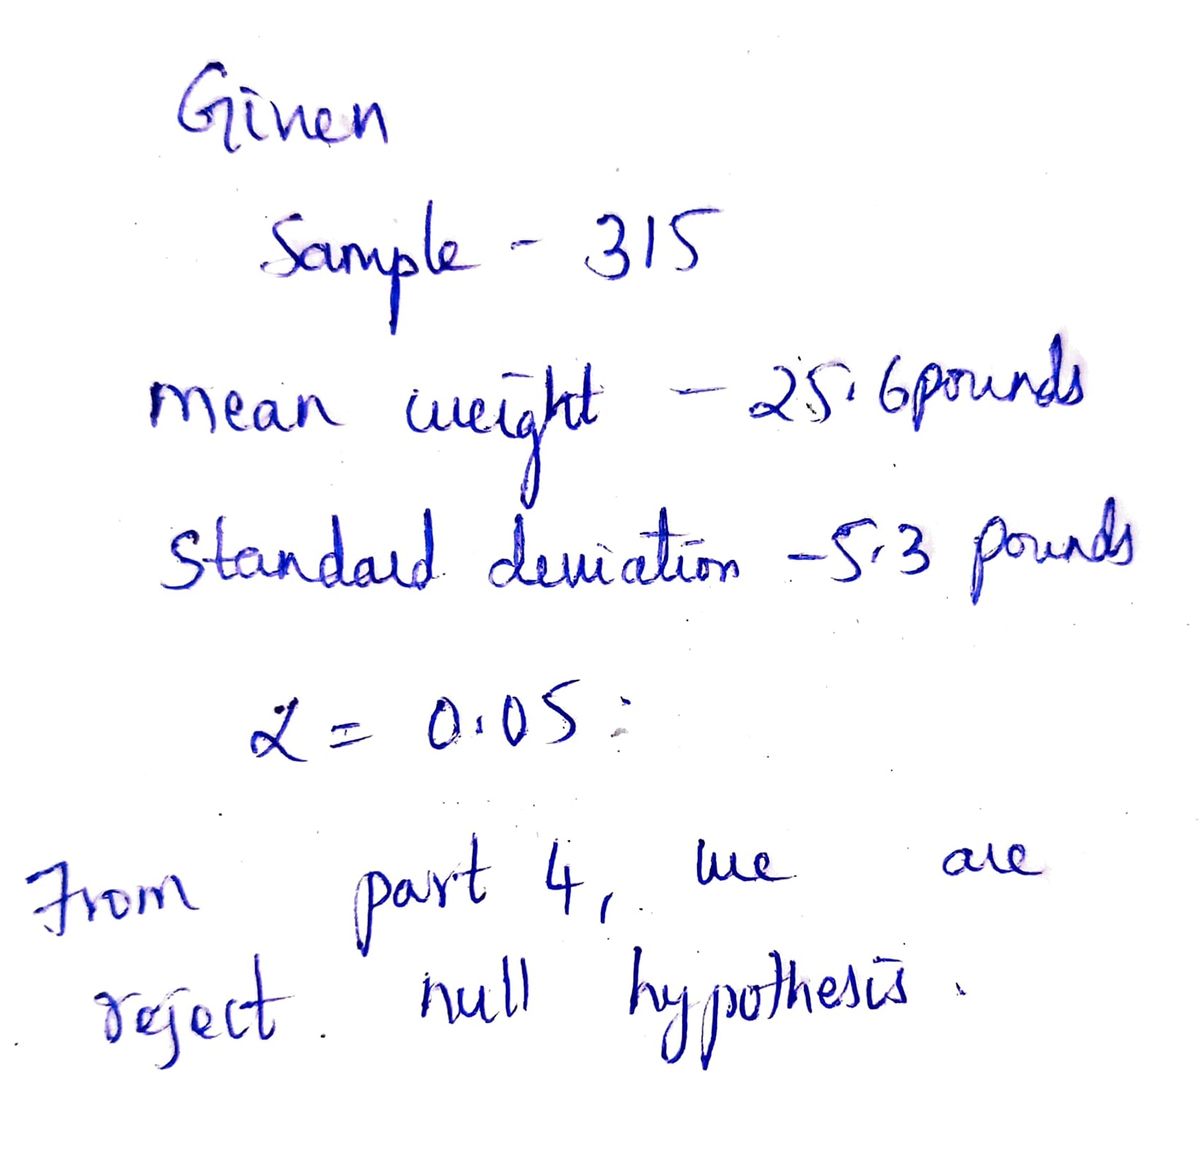 Given
Sample - 315
mean weight - 25.6 pounds
Standard deviation - 5.3 pounds
α = 0.05 :
From part 4, we are
reject. null hypothesis.